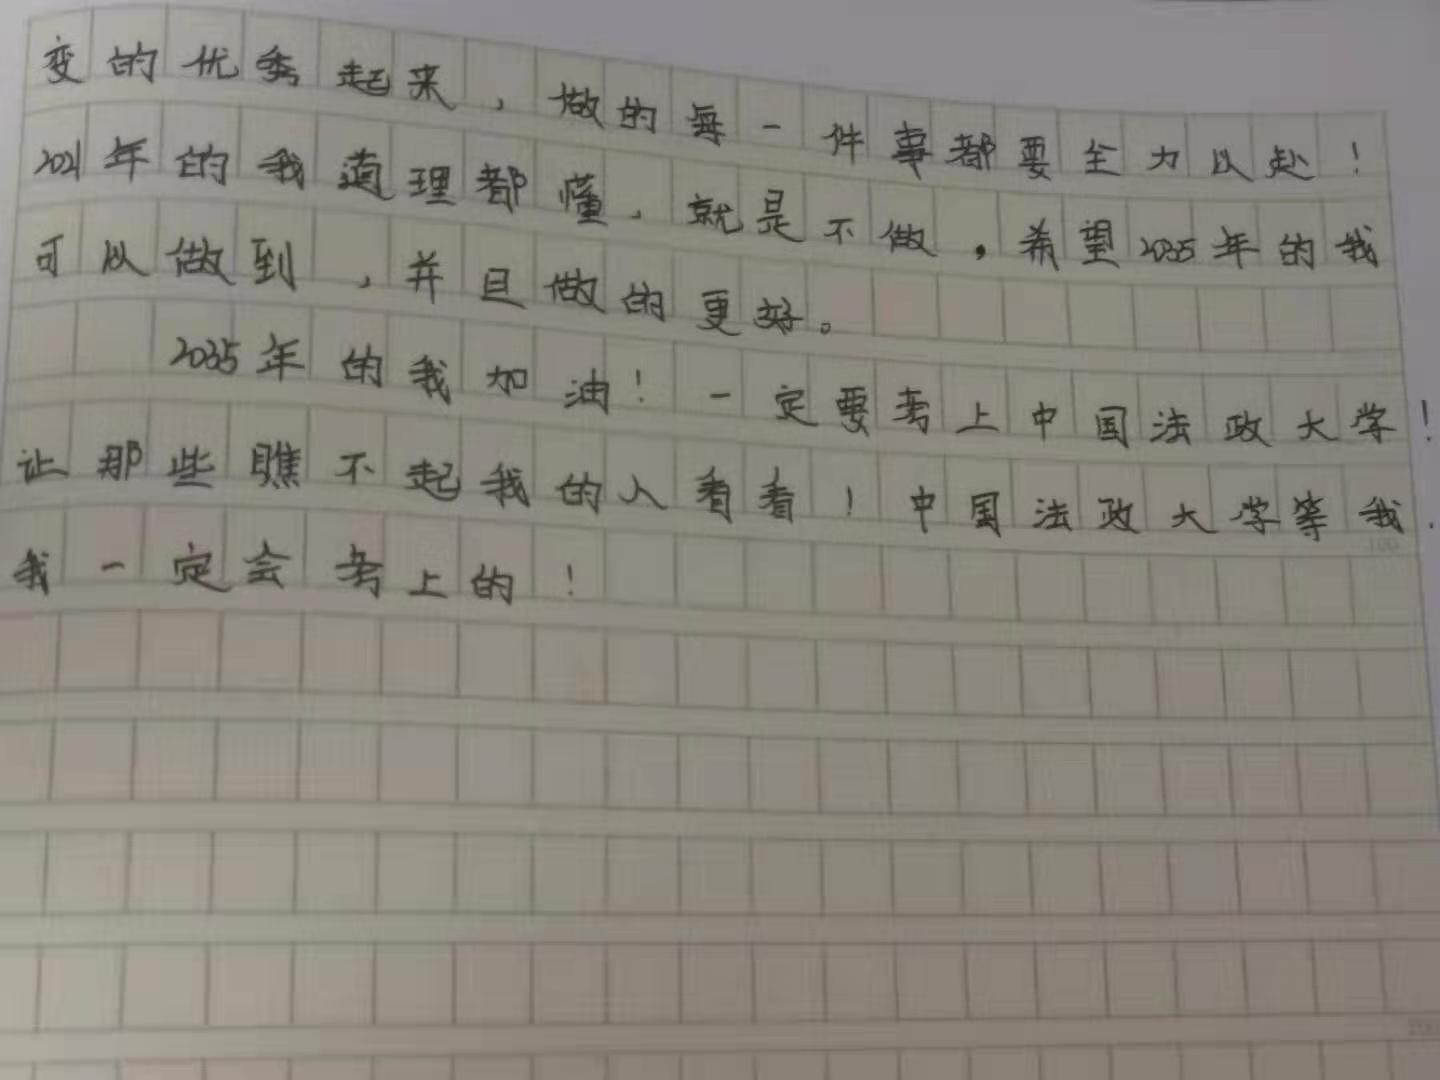 变的优秀起来,做的每一件事都要全力以赴!
2021年的我道理都懂,就是不做。希望2035年的我
可以做到,并且做的更好。
2035年的我加油!一定要考上中国法政大学!
让那些瞧不起我的人看看!中国法政大学等我.
我一定会考上的!